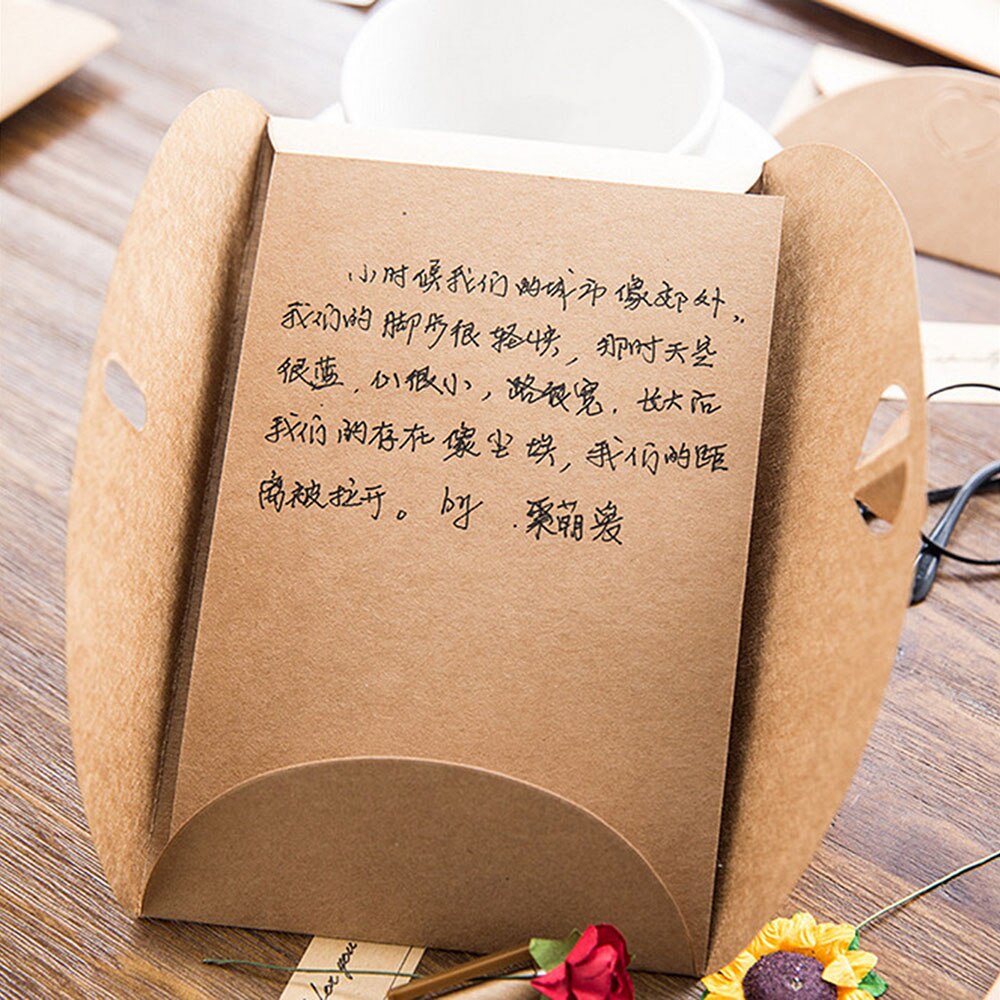 小时候我们的城市像郊外,
我们的脚步很轻快,那时天是
很蓝,山很小,路很宽,长大后
我们的存在像尘埃,我们的距
离被拉开。by 栗萌爱
for you